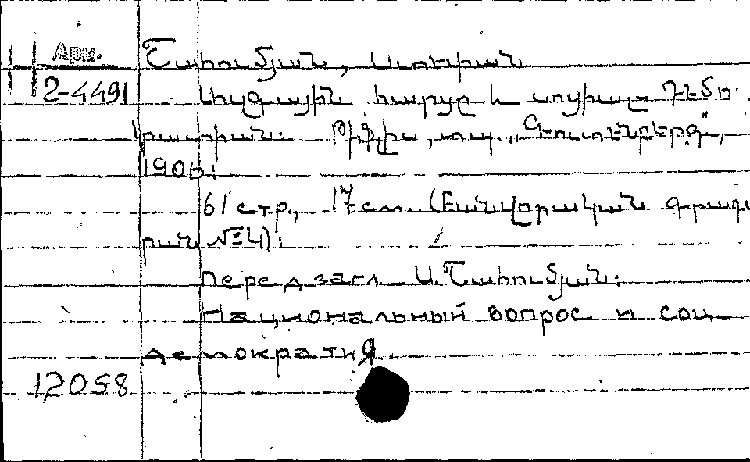 Арм. Շահումյան, Ստեփան
2-4491 Ազգային հարցը և սոցիալ-դեմո-
կրատիան: Թիֆլիս, տպ. „Գուտենբերգ",
1906:
61 стр., 17 см. (Բանվորական գրադա-
րան №4):
Перед загл. Ս. Շահումյան:
Национальный вопрос и соц.
демократия.
12058